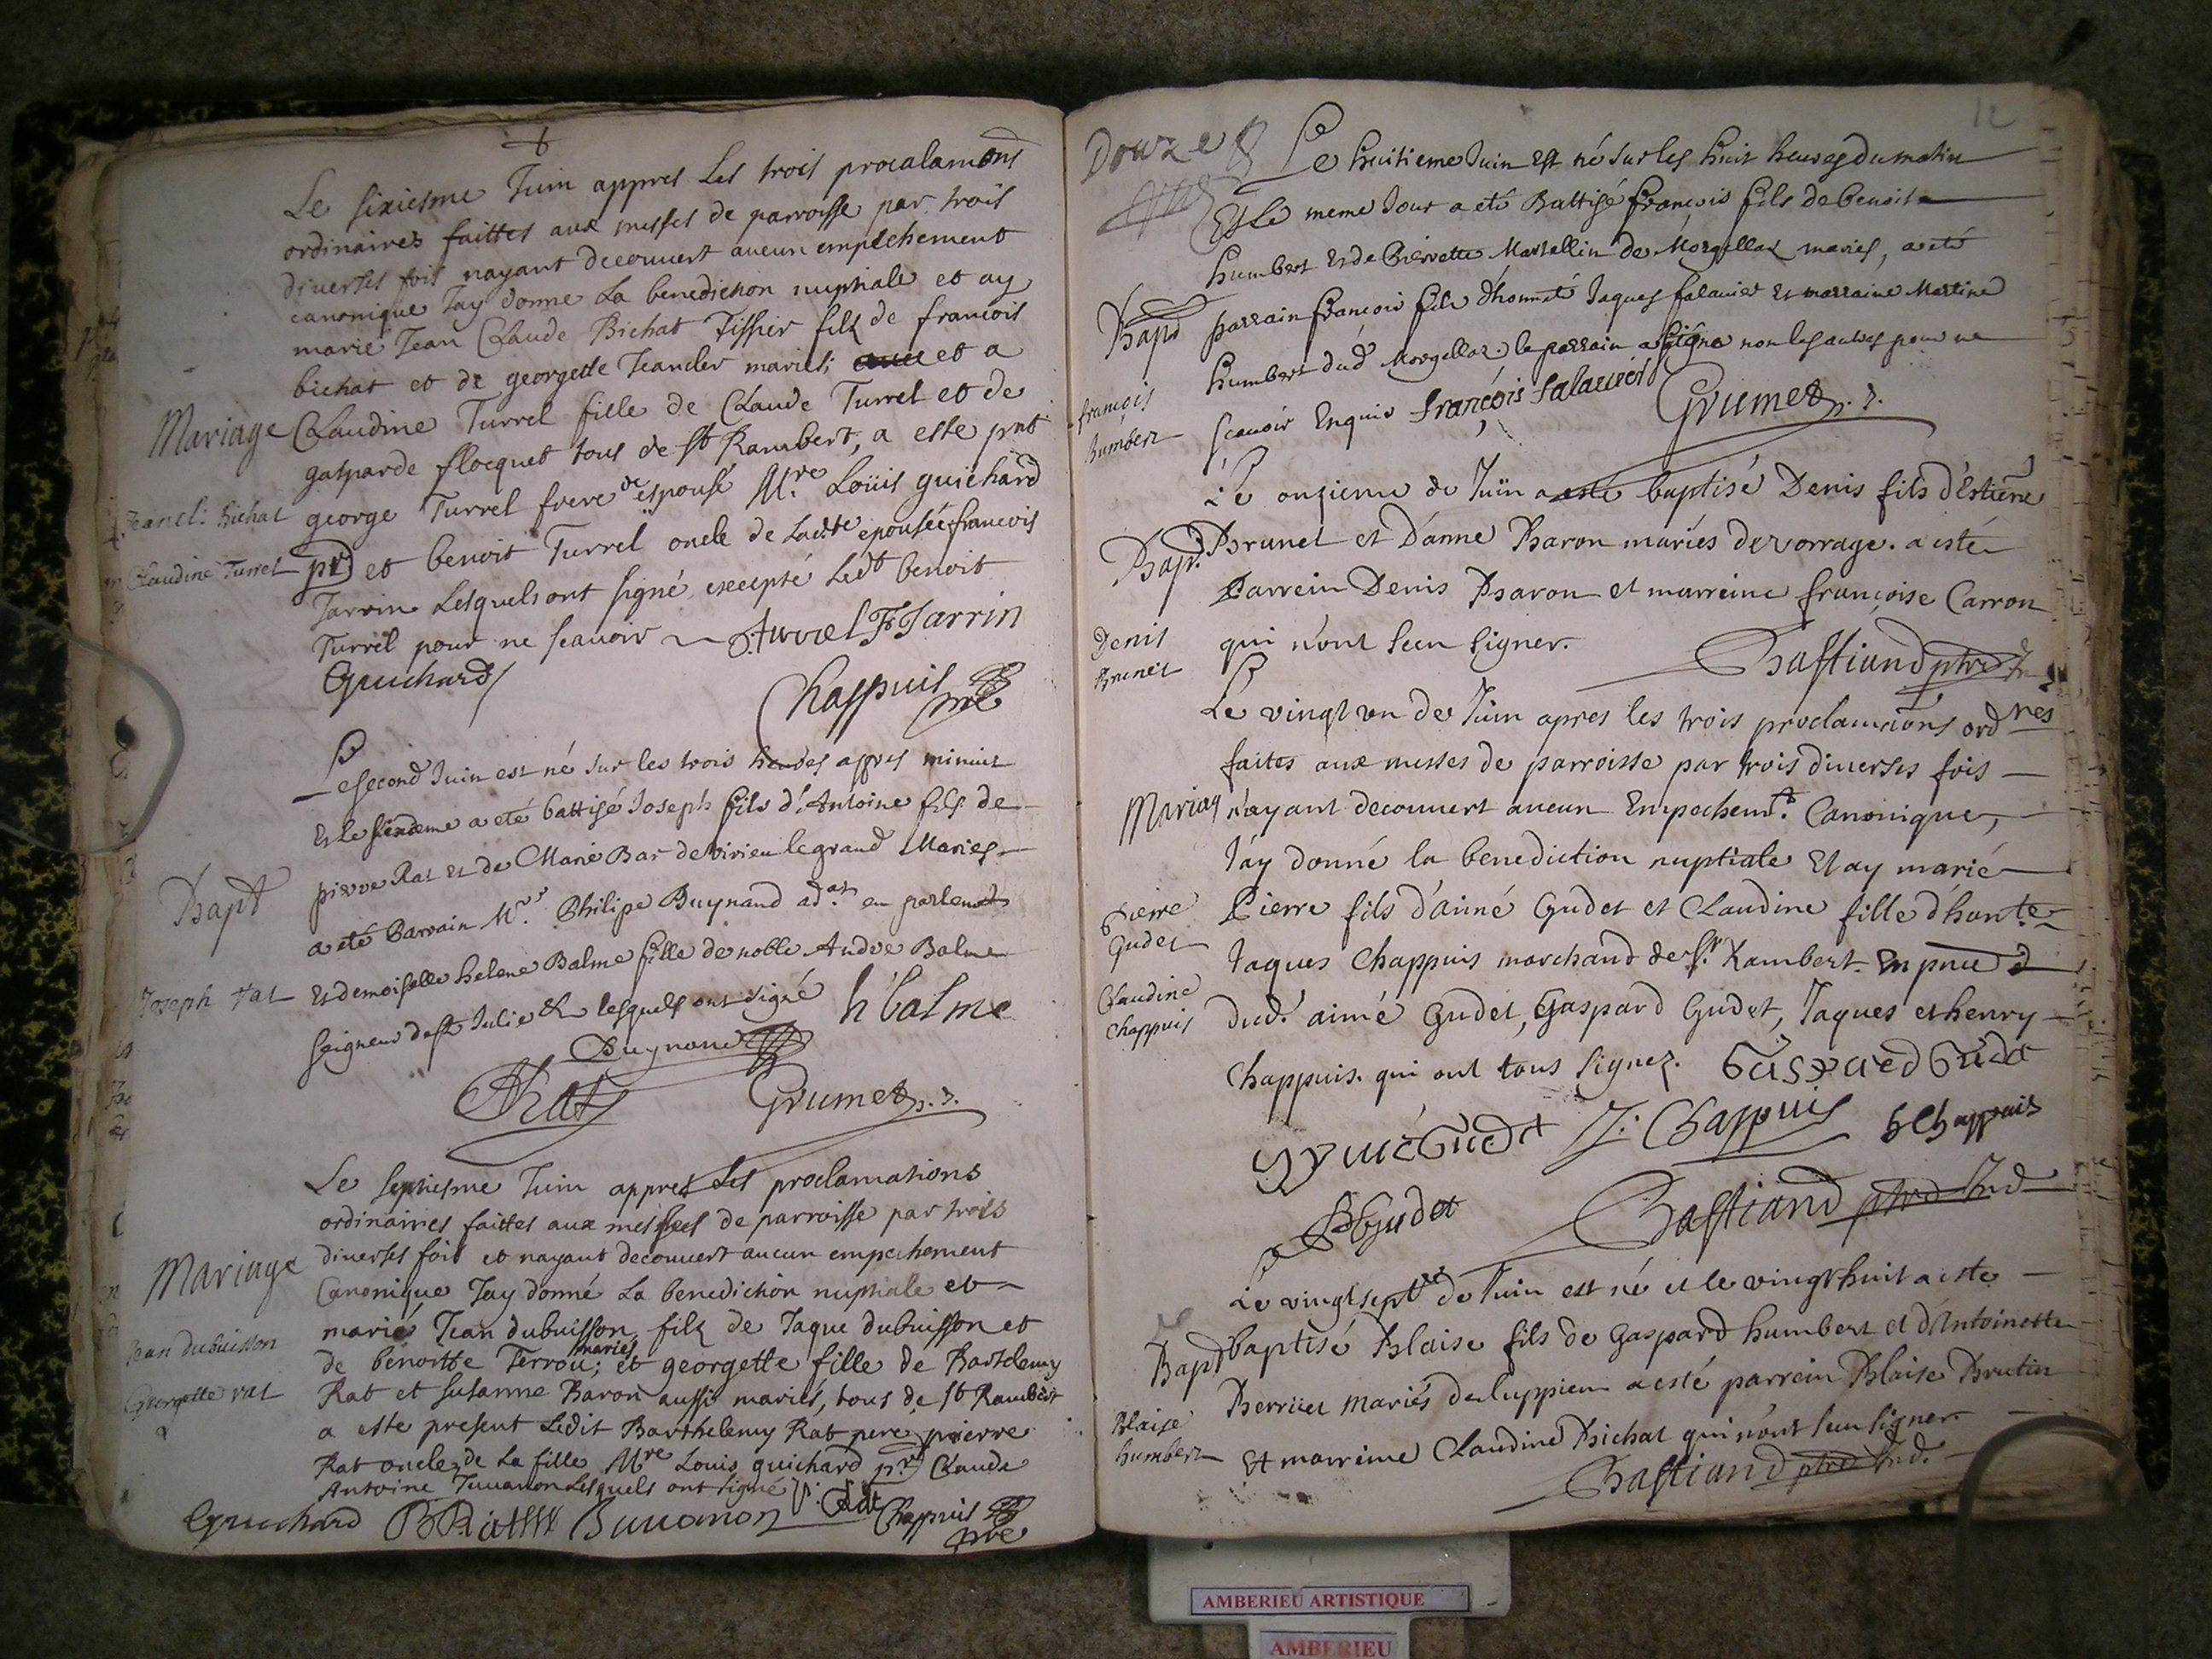 Le sixiesme Juin appres Les trois procalamons
ordinaires faittes aux messes de parroisse par trois
diverses fois nayant decouvert aucun empechement
canonique Jay donne La benediction nuptiale et ay
marie Jean Claude Bichat Tissier filz de francois
bichat et de georgette Jeancler mariés; et a
Mariage Claudine Turrel fille de Claude Turrel et de
gasparde flocquet tous de st Rambert, a este pnt
Jean Cl: Bichat george Turrel frere de espouse Mre Loüis guichard
Claudine Turrel et benoit Turrel oncle de Ladte epousée francois
Jarrin Lesquels ont signé excepté Ledt benoit
Turrel pour ne scavoir Turrel F Jarrin
Guichard
Chappuis pre
Le second Juin est né sur les trois heures appres minuit
Et le sixieme a eté battisé Joseph fils d'Antoine fils de
Bapt pierre Rat et de Marie Bar de virieu le grand Maries
a eté Parrain Mr. Philipe Buynand adat en parlemt
Joseph rat Et demoiselle helene Balme fille de noble Andre Balme
seigneur de ste Julie lesquels ont signé h balme
Buynand
Rat Grumet
Le septiesme Juin appres Les proclamations
ordinaires faittes aux messes de parroisse par trois
Mariage diverses fois et nayant decouvert aucun empechement
Canonique Jay donné La benediction nuptiale et
Jean dubuisson mariés Jean dubuisson filz de Jaque dubuisson et
de benoitte Terrou; mariés et georgette fille de Bartelemy
Georgette rat Rat et susanne Baron aussi mariés, tous de st Rambert
a este present Ledit Barthelemy Rat pere pierre
Rat oncle de La fille Mre Louis guichard Claude
Antoine Juvanon Lesquels ont signé
Guichard Juvanon Chappuis pre
12
Douze Le huitieme Juin Est né sur les huit heures du matin
Et Le meme Jour a eté Battisé françois fils de benoit
humbert Et de Pierrette Martellin de Morgellas mariés, a eté
Bapt parrain françois fils d'honneté Jaques falavier Et marraine Martine
humbert dud Morgellas le parrain a signé non les autres pour ne
françois humbert scavoir Enquis françois falavier Grumet
Le onzieme de Juin a esté baptisé Denis fils d'Estiene
Bapt. Brunet et D'anne Baron mariés de vorrage. a esté
Parrein Denis Baron et marreine françoise Carron
Denis Brunet qui n'ont sceu signer.
Bastiand ptre
Le vingt un de Juin apres les trois proclamations ordres
faites aux messes de parroisse par trois diverses fois
Mariag n'ayant decouvert aucun Empechemt. Canonique,
J'ay donné la benediction nuptiale Et ay marié
Pierre Gudet Pierre fils d'aimé Gudet et Claudine fille d'honte
Jaques Chappuis marchand de St. Rambert. En pnce
Claudine Chappuis dud. aimé Gudet, Gaspard Gudet, Jaques et henry
Chappuis. qui ont tous signez. Gaspard Gudet
Aymé Gudet J: Chappuis h Chappuis
P Gudet Bastiand ptre Ind
Le vingt sept de Juin est né et le vingt huit a este
Bapt baptisé Blaise fils de Gaspard humbert et d'Antoinette
Berriet mariés de luppieu a esté parrein Blaise Brutin
Blaise humbert Et marreine Claudine Bichat qui n'ont sceu signer.
Bastiand ptre Ind.
AMBERIEU ARTISTIQUE
AMBERIEU